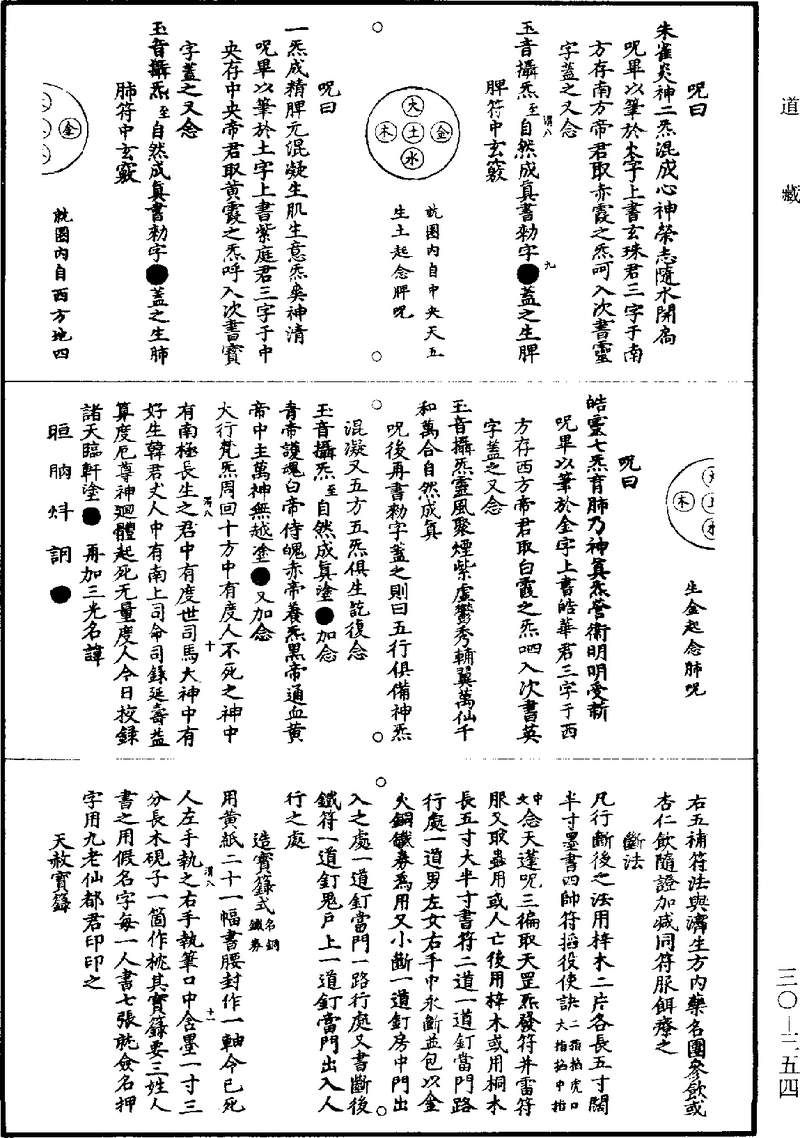 道藏
呪曰
朱雀炎神二炁混成心神榮志隨水開
呪畢以筆於火字上書玄珠君三字于南
方存南方帝君取赤霞之炁呵入次書靈
字蓋之又念
玉音攝炁至自然成真書勑字●蓋之生脾
脾符中玄竅
大
木土金
水
就圈內自中央天五
生土起念脾呪
呪曰
一炁成精脾元混凝生肌生意炁奭神清
呪畢以筆於土字上書紫庭君三字于中
央存中央帝君取黃霞之炁呼入次書寶
字蓋之又念
玉音攝炁至自然成真書勑字●蓋之生肺
肺符中玄竅
金
就圈內自西方地四
木
生金起念肺呪
呪曰
皓靈七炁育肺乃神真炁營衛明明受新
呪畢以筆於金字上書皓華君三字于西
方存西方帝君取白霞之炁呬入次書英
字蓋之又念
玉音攝炁靈風聚煙紫虛鬱秀輔翼萬仙千
和萬合自然成真
呪後再書勑字蓋之則曰五行俱備神炁
混凝又五方五炁俱生訖復念
玉音攝炁至自然成真塗●加念
青帝護魂白帝侍魄赤帝養炁黑帝通血黃
帝中主萬神無越塗●又加念
大行梵炁周回十方中有度人不死之神中
有南極長生之君中有度世司馬大神中有
好生韓君丈人中有南上司命司錄延壽益
算度厄尊神迴體起死无量度人今日校錄
諸天臨軒塗●再加三光名諱
●
右五補符法與濟生方內藥名圈參飲或
杏仁飲隨證加減同符服餌療之
斷法
凡行斷後之法用梓木二片各長五寸闊
半寸墨書四帥符掐役使訣二指掐虎口大指掐中指
中文念天蓬呪三徧取天罡炁發符并雷符
服又取蟲用或人亡後用梓木或用桐木
長五寸大半寸書符二道一道釘當門路
行處一道男左女右手中永斷並包以金
火銅鐵券為用又小斷一道釘房中門出
入之處一道釘當門一路行處又書斷後
鐵符一道釘鬼戶上一道釘當門出入人
行之處
造寶籙式名銅鐵券
用黃紙二十一幅書腰封作一軸令已死
人左手執之右手執筆口中含墨一寸三
分長木硯子一箇作枕其寶籙要三姓人
書之用假名字每一人書七張就僉名押
字用九老仙都君印印之
天赦寶籙
三〇—三五四